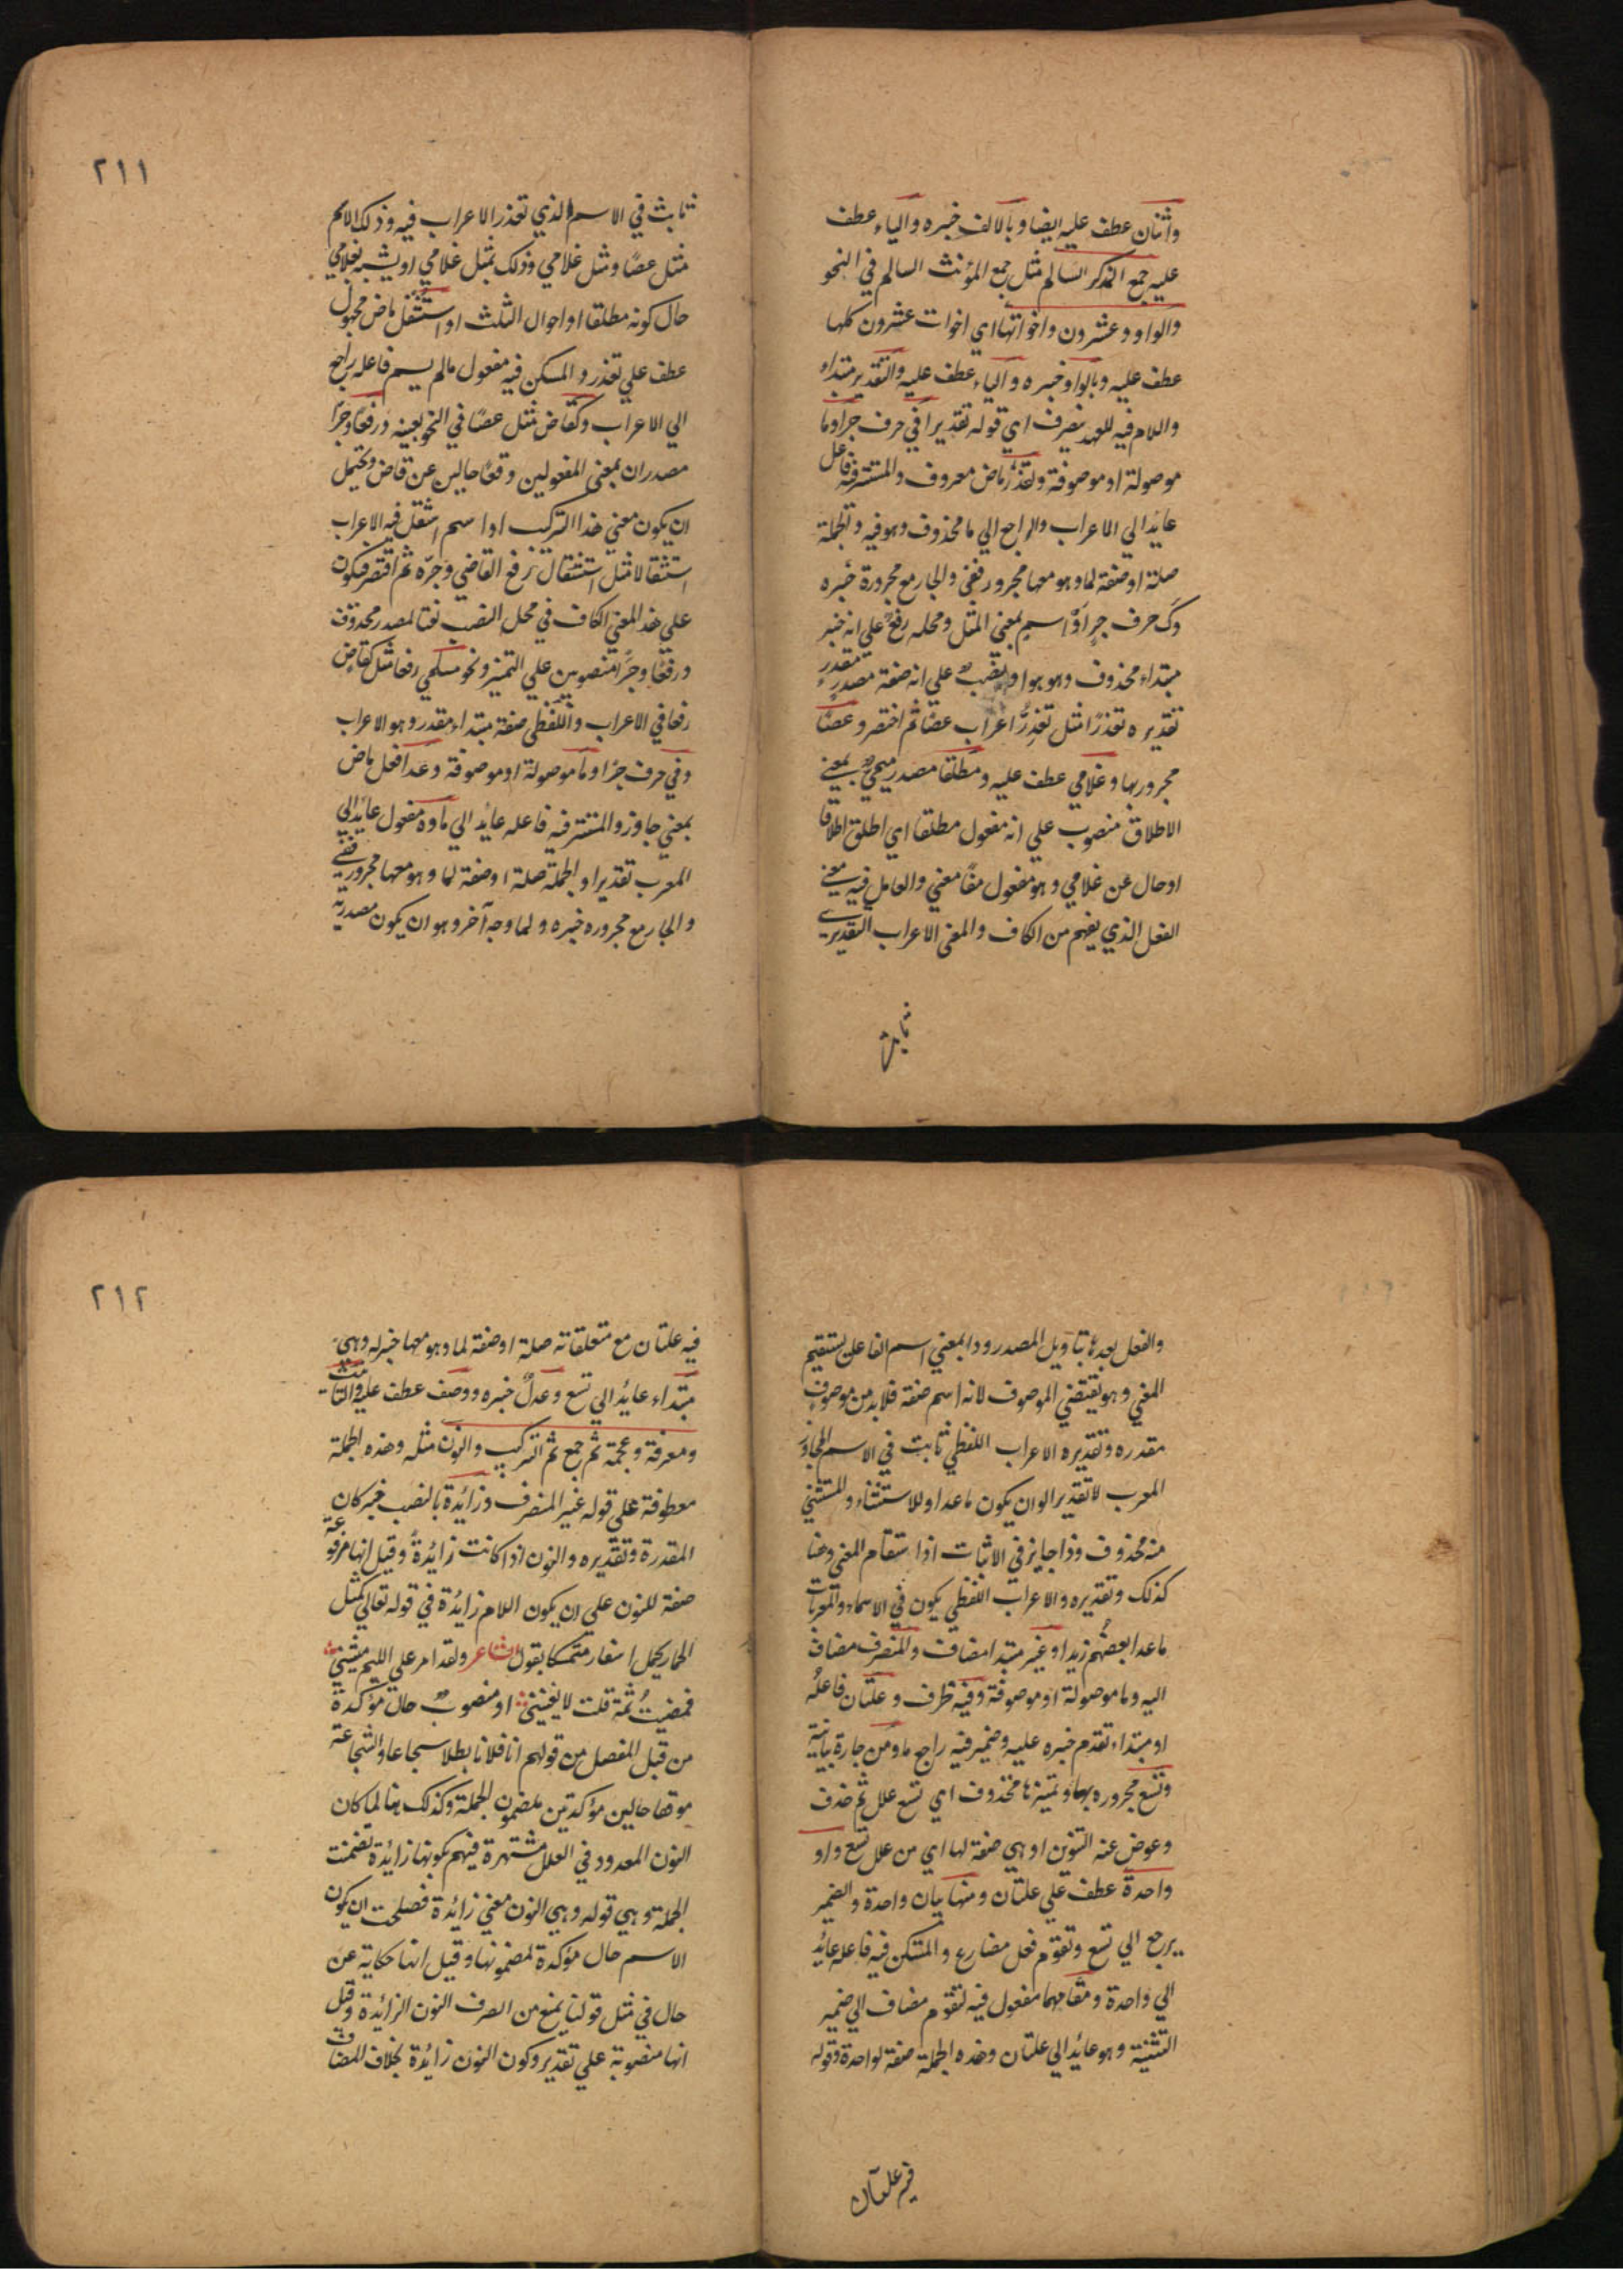 واثنان عطف عليه ايضا وبالالف خبره والياء عطف
عليه جمع المذكر السالم مثل جمع المؤنث السالم في النحو
والواو وعشرون واخواتها اي اخوات عشرون كلها
عطف عليه وبالواو خبره والياء عطف عليه والتقدير مبتداء
واللام فيه للعهد ينصرف اي قوله تقديرا في حرف جر وما
موصولة او موصوفة وتعذر ماض معروف والمستتر فيه فاعل
عايد الي الاعراب والراجع الي ما محذوف وهو فيه والجملة
صلة او صفة لما وهو معها مجرور بفي والجار مع مجروره خبره
وك حرف جر او اسم بمعني المثل ومحله رفع علي انه خبر
مبتداء محذوف وهو هو او نصب علي انه صفة مصدر مقدر
تقديره تعذرا مثل تعذر اعراب عصا ثم اختصر وعصا
مجرور بها وغلامي عطف عليه ومطلقا مصدر ميمي بمعني
الاطلاق منصوب علي انه مفعول مطلقا اي اطلق اطلاقا
او حال عن غلامي وهو مفعول معني والعامل فيه معني
الفعل الذي يفهم من الكاف والمعني الاعراب التقديري
ثابت
٢١١
ثابث في الاسم الذي تعذر الاعراب فيه وذلك الاسم
مثل عصا ومثل غلامي وذلك بمثل غلامي او يشبه بغلامي
حال كونه مطلقا او احوال الثلث او استثقل ماض مجهول
عطف علي تعذر والمسكن فيه مفعول مالم يسم فاعله راجع
الي الاعراب وكقاض مثل عصا في النحو بعينه ورفعا وجرا
مصدران بمعني المفعولين وقعا حالين عن قاض ويحتمل
ان يكون معني هذا التركيب او اسم استثقل فيه الاعراب
استثقالا مثل استثقال رفع القاضي وجره ثم اختصر فيكون
علي هذا المعني الكاف في محل النصب نعتا لمصدر محذوف
ورفعا وجرا منصوبين علي التميز ونحو مسلمي رفعا مثل كقاض
رفعا في الاعراب واللفظي صفة مبتداء مقدر وهو الاعراب
وفي حرف جر وما موصولة او موصوفة وعدا فعل ماض
بمعني جاوز والمستتر فيه فاعله عايد الي ما وه مفعول عايد الي
المعرب تقديرا والجملة صلة او صفة لما وهو معها مجرور بفي
والجار مع مجروره خبره ولما وجه آخر وهو ان يكون مصدرية
والفعل بعدها بتاويل المصدر وذا بمعني اسم الفاعل ليستقيم
المعني وهو يقتضي الموصوف لانه اسم صفة فلا بد من موصوف
مقدره وتقديره الاعراب اللفظي ثابت في الاسم المجاوز
المعرب لا تقديرا او ان يكون ما عدا للاستثناء والمستثني
منه محذوف وذا جايز في الاثبات اذا استقام المعني وهنا
كذلك وتقديره والاعراب اللفظي يكون في الاسماء والمعربات
ما عدا بعضهم زيدا وغير مبتدا مضاف والمنصرف مضاف
اليه وما موصولة او موصوفة وفيه ظرف وعلتان فاعله
او مبتداء تقدم خبره عليه وضمير فيه راجع ما ومن جارة بيانية
وتسع مجروره بها وتميزها محذوف اي تسع علل ثم حذف
وعوض عنه التنوين او هي صفة لها اي من علل تسع واو
واحدة عطف علي علتان ومنها بيان واحدة والضمير
يرجع الي تسع وتقوم فعل مضارع والمسكن فيه فاعله عائد
الي واحدة ومقامهما مفعول فيه لتقوم مضاف الي ضمير
التثنية وهو عائد الي علتان وهذه الجملة صفة لواحدة وقوله
فيه علتان
٢١٢
فيه علتان مع متعلقاته صلة او صفة لما وهو معها خبر له وهي
مبتداء عايد الي تسع وعدل خبره ووصف عطف عليه والتانيث
ومعرفة وعجمة ثم جمع ثم التركيب والنون مثله وهذه الجملة
معطوفة علي قوله غير المنصرف وزائدة بالنصب خبر كان
المقدرة وتقديره والنون اذا كانت زائدة وقيل انها مرفوعة
صفة للنون علي ان يكون اللام زائدة في قوله تعالي كمثل
الحمار يحمل اسفارا متمسكا بقول الشاعر ولقد امر علي اللئيم يسبني
فمضيت ثمة قلت لا يعنيني او منصوب حال مؤكدة
من قبل المفصل من قولهم انا فلانا بطلا شجاعا والشجاعة
موقعها حالين مؤكدتين لمضمون الجملة وكذلك هنا لما كان
النون المعدود في العلل مشتهرة فيهم بكونها زائدة تضمنت
الجملة وهي قوله وهي النون معني زائدة فصلحت ان يكون
الاسم حال مؤكدة لمضمونها وقيل انها حكاية عن
حال في مثل قولنا يمنع من الصرف النون الزائدة وقيل
انها منصوبة علي تقدير وكون النون زائدة بخلاف المضاف